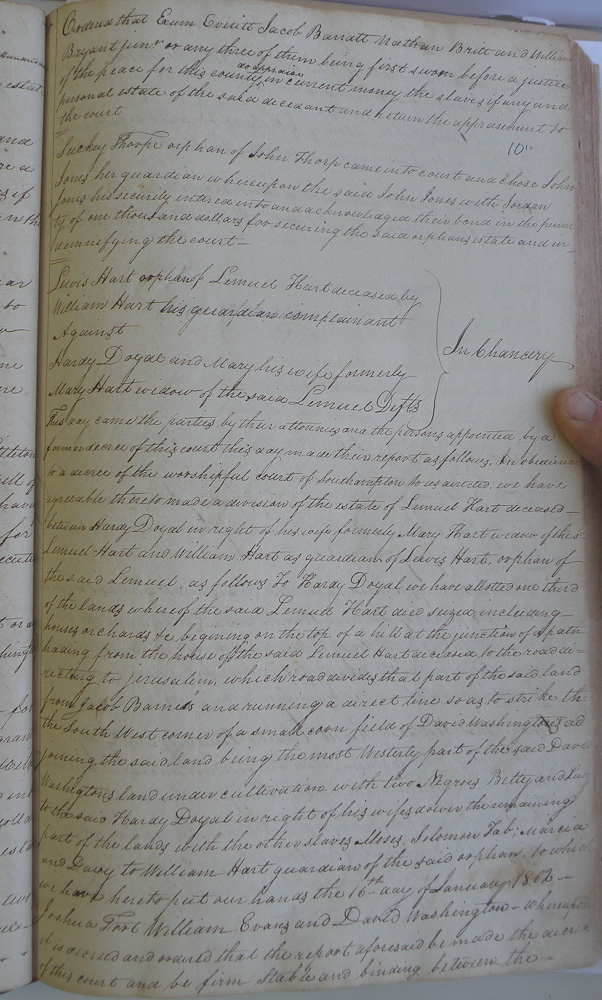 Ordered that Exum Everitt Jacob Barratt Nathan Britt and William
Bryant junr or any three of them being first sworn before a justice
of the peace for this county do appraise in current money the slaves if any and
personal estate of the said decedant and return the appraisment to
the court
10
Suckey Thorpe orphan of John Thorp came into court and chose John
Jones her guardian whereupon the said John Jones with Jordan
Jones his security entered into and acknowledged their bond in the penal
ty of one thousand dollars for securing the said orphans estate and in
demnifying the court
Lewis Hart orphan of Lemuel Hart deceased by
William Hart his guardian complainant
Against
Hardy Doyal and Mary his wife formerly
Mary Hart widow of the said Lemuel Defts
In Chancery
This day came the parties by their attornies and the persons appointed by a
former decree of this court this day made their report as follows, In obedience
to a decree of the worshipful court of Southampton to us directed, we have
agreeable thereto made a division of the estate of Lemuel Hart deceased
between Hardy Doyal in right of his wife formerly Mary Hart widow of the s
Lemuel Hart and William Hart as guardian of Lewis Hart, orphan of
the said Lemuel, as follows To Hardy Doyal we have allotted one third
of the lands whereof the said Lemuel Hart died seized including
houses orchards &c begining on the top of a hill at the junction of a path
leading from the house of the said Lemuel Hart deceased to the road di
recting to Jerusalem, which road divides that part of the said land
from Jacob Barness and running a direct line so as to strike th
the South West corner of a small corn field of David Washingtons ad
joining the said land being the most Westerly part of the said David
Washingtons land under cultivation with two Negroes Bettey and Lucy
to the said Hardy Doyal in right of his wifes dower the remaining
part of the lands with the other slaves Moses, Solomon Tab, Marcia
and Davy to William Hart guardian of the said orphan, to which
we have hereto put our hands the 16th day of January
Joshua Fort William Evans and David Washington - whereupon
it is decreed and ordered that the report aforesaid be made the decree
of this court and be firm stable and binding between the